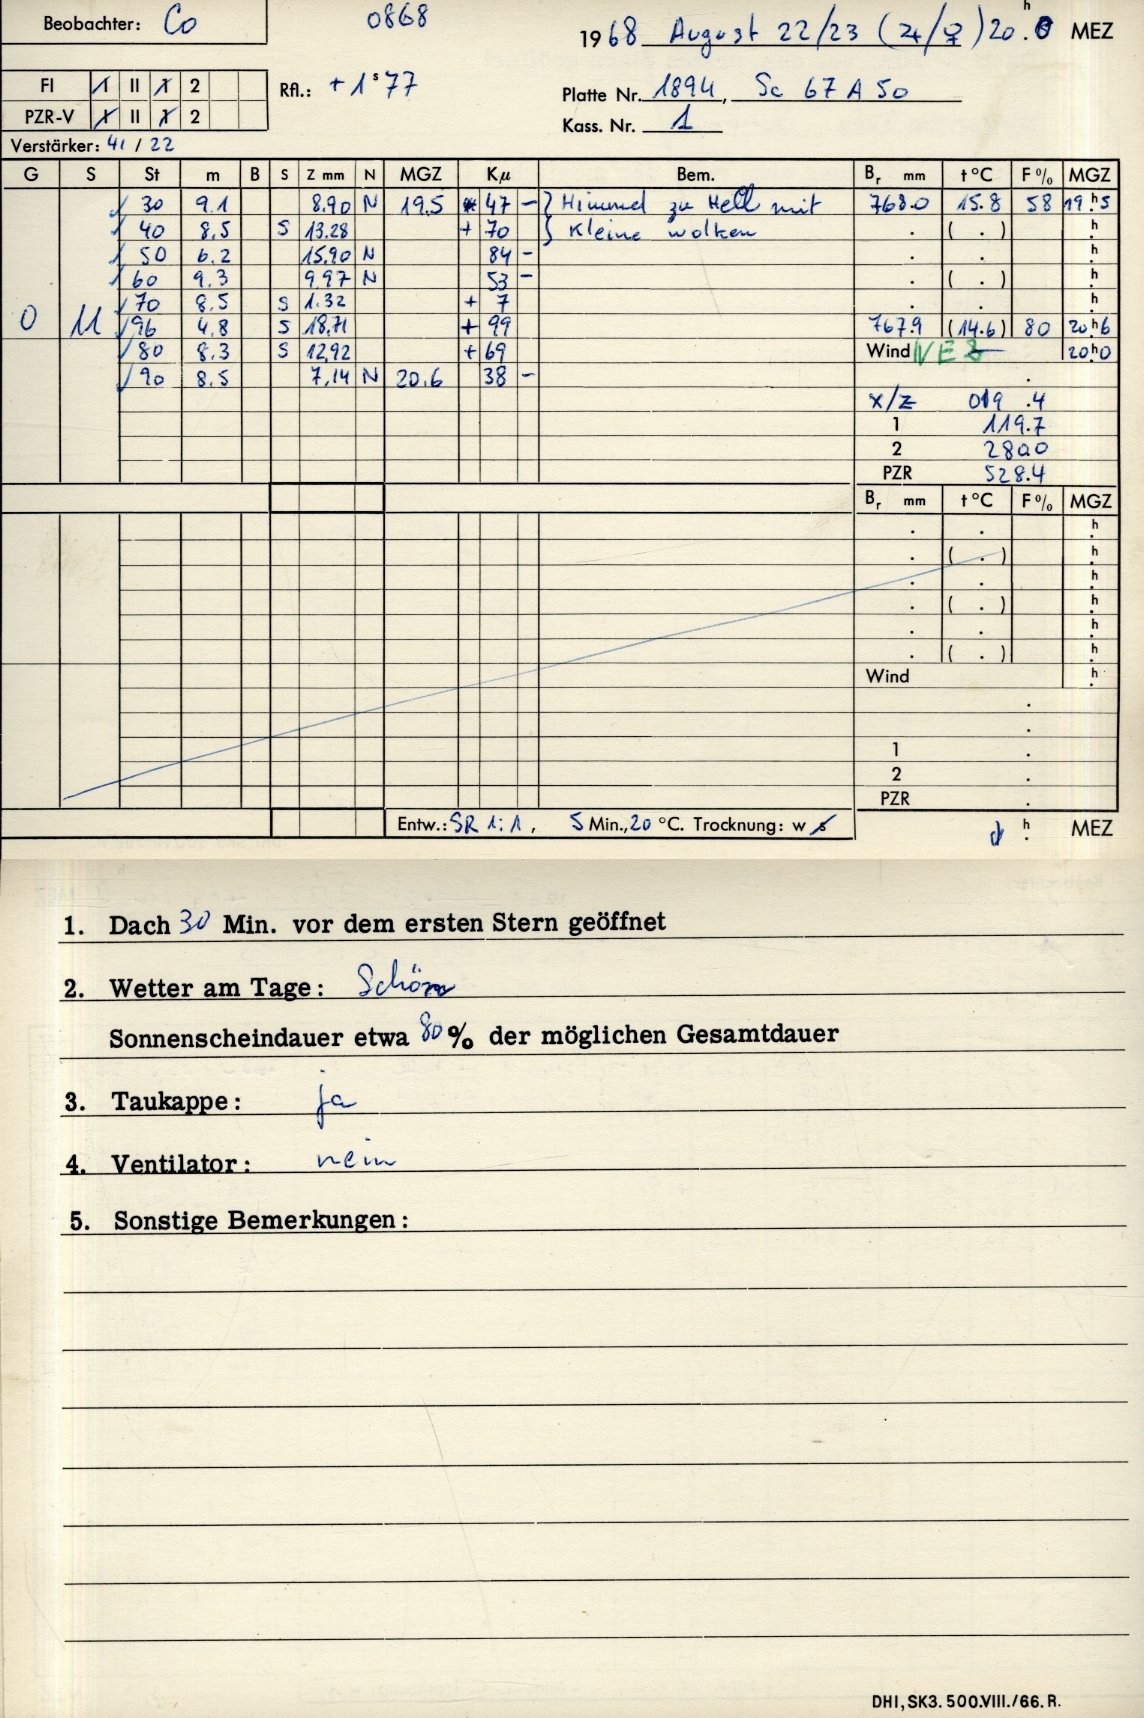 Beobachter: Co
0868
1968 August 22/23 (♃/♀) 20.h0 MEZ
FI 1 II 1 2
PZR-V I II 1 2
Rfl.: +1s77
Platte Nr. 1894, Sc 67 A 50
Kass. Nr. 1
Verstärker: 41 / 22
G S St m B S Z mm N MGZ Kμ Bem. Br mm t°C F% MGZ
30 9.1 8.90 N 19.5 47 - } Himmel zu Hell mit 768.0 15.8 58 19.h5
40 8.5 S 13.28 + 70 } Kleine wolken . ( . ) h
50 6.2 15.90 N 84 - . . h
60 9.3 9.97 N 53 - . ( . ) h
70 8.5 S 1.32 + 7 . . h
O U 96 4.8 S 18.71 + 99 767.9 (14.6) 80 20.h6
80 8.3 S 12.92 + 69 Wind NE 20h0
90 8.5 7.14 N 20.6 38 - .
x/z 019.4
1 119.7
2 280.0
PZR 528.4
Br mm t°C F% MGZ
. . h
. ( . ) h
. . h
. ( . ) h
. . h
. ( . ) h
Wind h
.
.
1 .
2 .
PZR .
Entw.: SR 1:1, 5 Min., 20 °C. Trocknung: w s
h MEZ
1. Dach 30 Min. vor dem ersten Stern geöffnet
2. Wetter am Tage: Schön
Sonnenscheindauer etwa 80% der möglichen Gesamtdauer
3. Taukappe: ja
4. Ventilator: nein
5. Sonstige Bemerkungen:
DHI, SK3. 500.VIII./66. R.